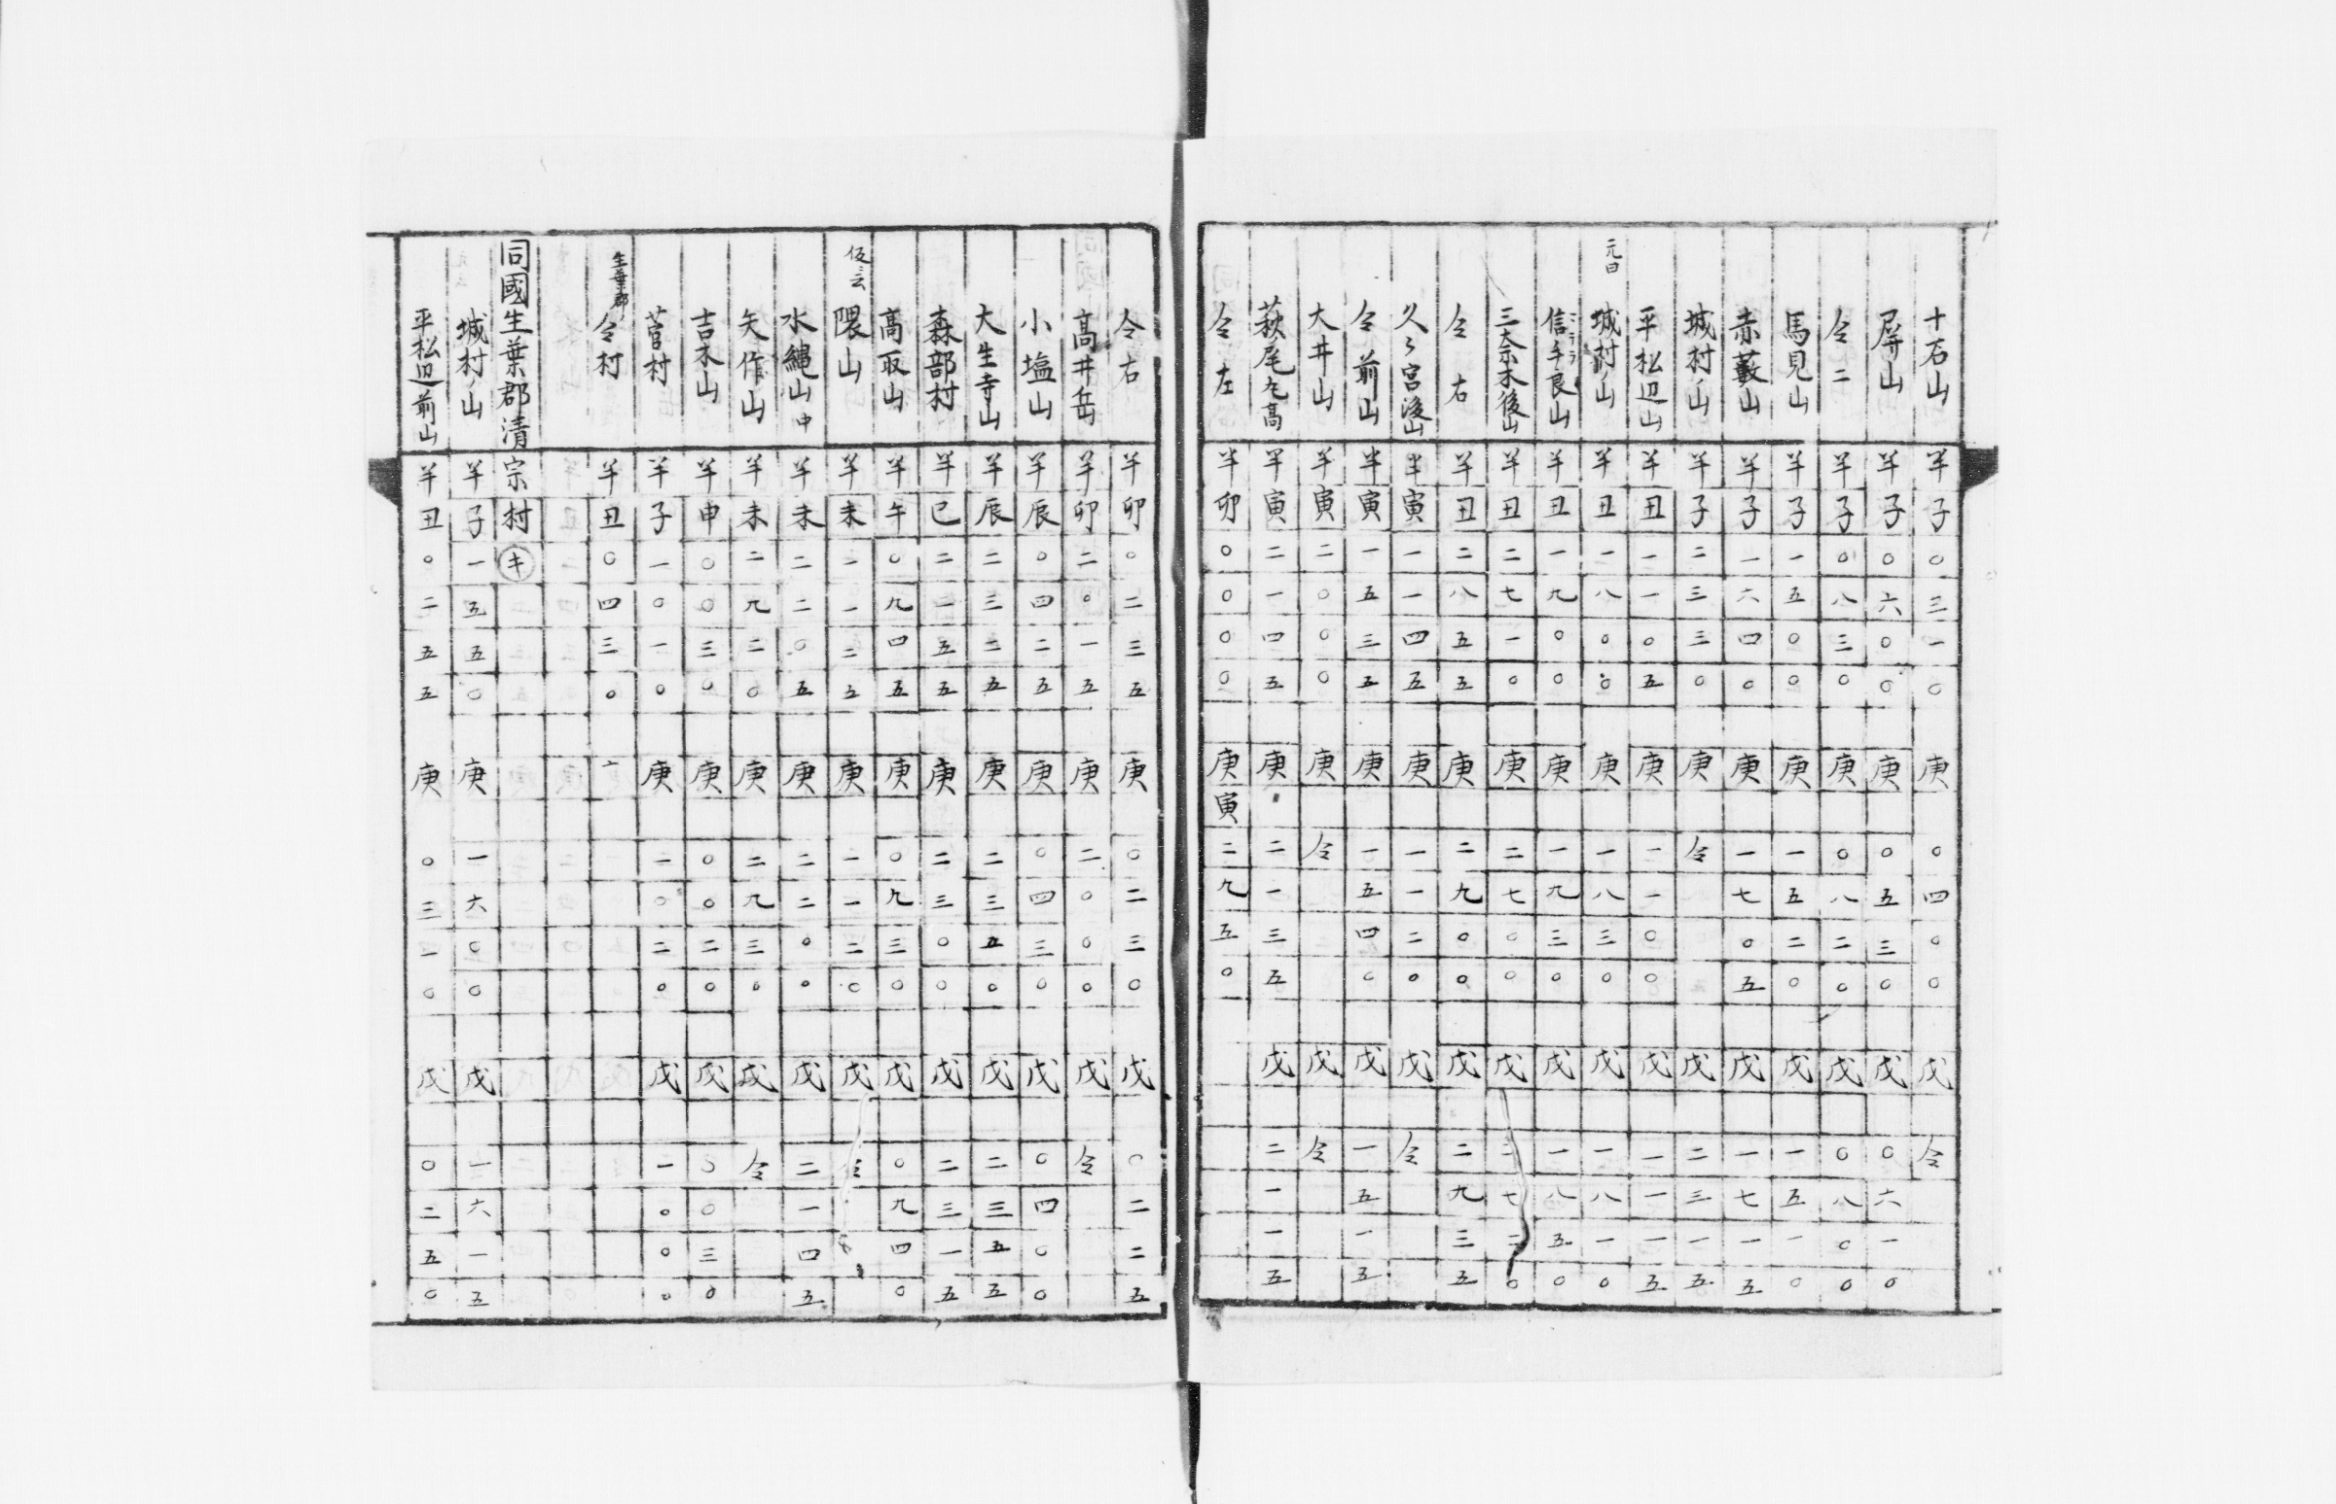 十石山 半子〇三一〇 庚〇四〇〇 戊仝
屏山 半子〇六〇〇 庚〇五三〇 戊〇六一〇
仝二 半子〇八三〇 庚〇八二〇 戊〇八〇〇
馬見山 半子一五〇〇 庚一五二〇 戊一五一〇
赤薮山 半子一六四〇 庚一七〇五 戊一七一五
城村ノ山 半子二三三〇 庚仝 戊二三一五
平松辺山 半丑一一〇五 庚一一〇〇 戊一一一五
元曰 城村ノ山 半丑一八〇〇 庚一八三〇 戊一八一〇
信手良山 半丑一九〇〇 庚一九三〇 戊一八五〇
三奈木後山 半丑二七一〇 庚二七〇〇 戊二七二〇
仝右 半丑二八五五 庚二九〇〇 戊二九三五
久々宮後山 半寅一一四五 庚一一二〇 戊仝
仝前山 半寅一五三五 庚一五四〇 戊一五一五
大井山 半寅二〇〇〇 庚仝 戊仝
萩尾九高 半寅二一四五 庚〃二一三五 戊二一一五
仝左 半卯〇〇〇〇 庚寅二九五〇
仝右 半卯〇二三五 庚〇二三〇 戊〇二二五
高井岳 半卯二〇一五 庚二〇〇〇 戊仝
小塩山 半辰〇四二五 庚〇四三〇 戊〇四〇〇
大生寺山 半辰二三二五 庚二三五〇 戊二三五五
森部村 半巳二一五五 庚二三〇〇 戊二三一五
高取山 半午〇九四五 庚〇九三〇 戊〇九四〇
仮ニ云 隈山 半未一一二五 庚一一二〇 戊仝
水縄山中 半未二二〇五 庚二二〇〇 戊二一四五
矢作山 半未二九二〇 庚二九三〇 戊仝
吉木山 半申〇〇三〇 庚〇〇二〇 戊〇〇三〇
菅村 半子一〇一〇 庚一〇二〇 戊一〇〇〇
生葉郡 仝村 半丑〇四三〇
同國生葉郡清宗村 キ
城村ノ山 半子一五五〇 庚一六〇〇 戊一六一五
平松辺前山 半丑〇二五五 庚〇三一〇 戊〇二五〇